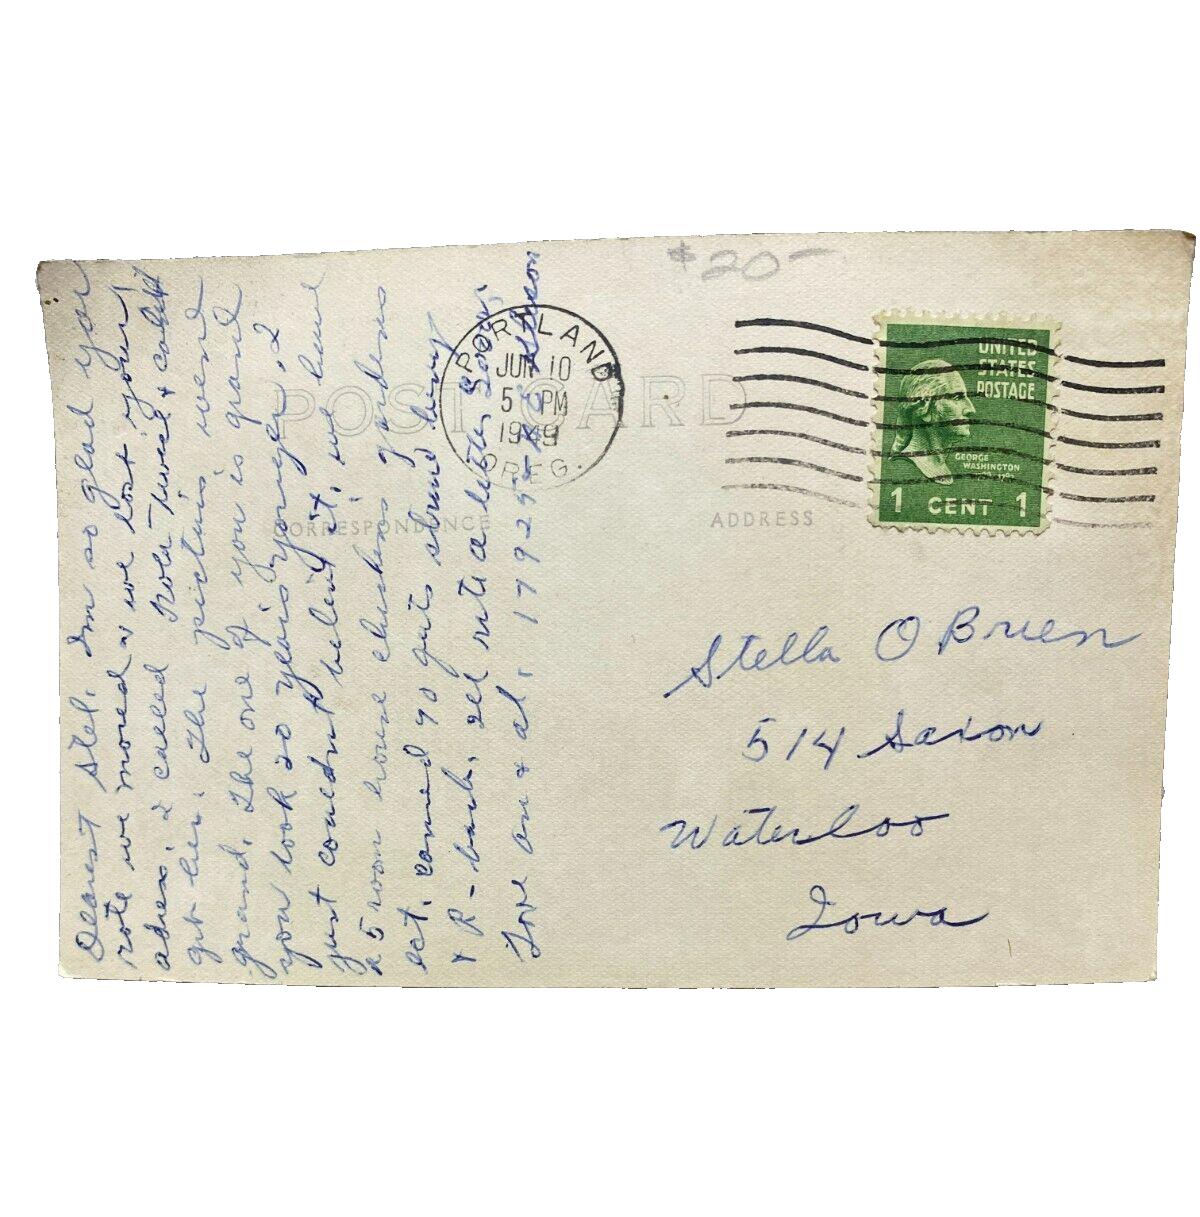 $20-
POST CARD
CORRESPONDENCE
ADDRESS
PORTLAND
JUN 10
5 PM
1949
OREG.
UNITED
STATES
POSTAGE
GEORGE
WASHINGTON
1 CENT 1
Dearest Stel. Im so glad you
rote we moved & we lost your
adress, I called Nola twice & couldnt
get her. The pictures were
grand. The one of you is grand
you look 20 years younger. I
just couldnt believe it, we have
a 5 room house chickens gardens
ect. caned 90 quts straw berrys
& R- will rite a letter soon,
Love on & al. 1792
Stella O Brien
514 Saxon
Waterloo
Iowa